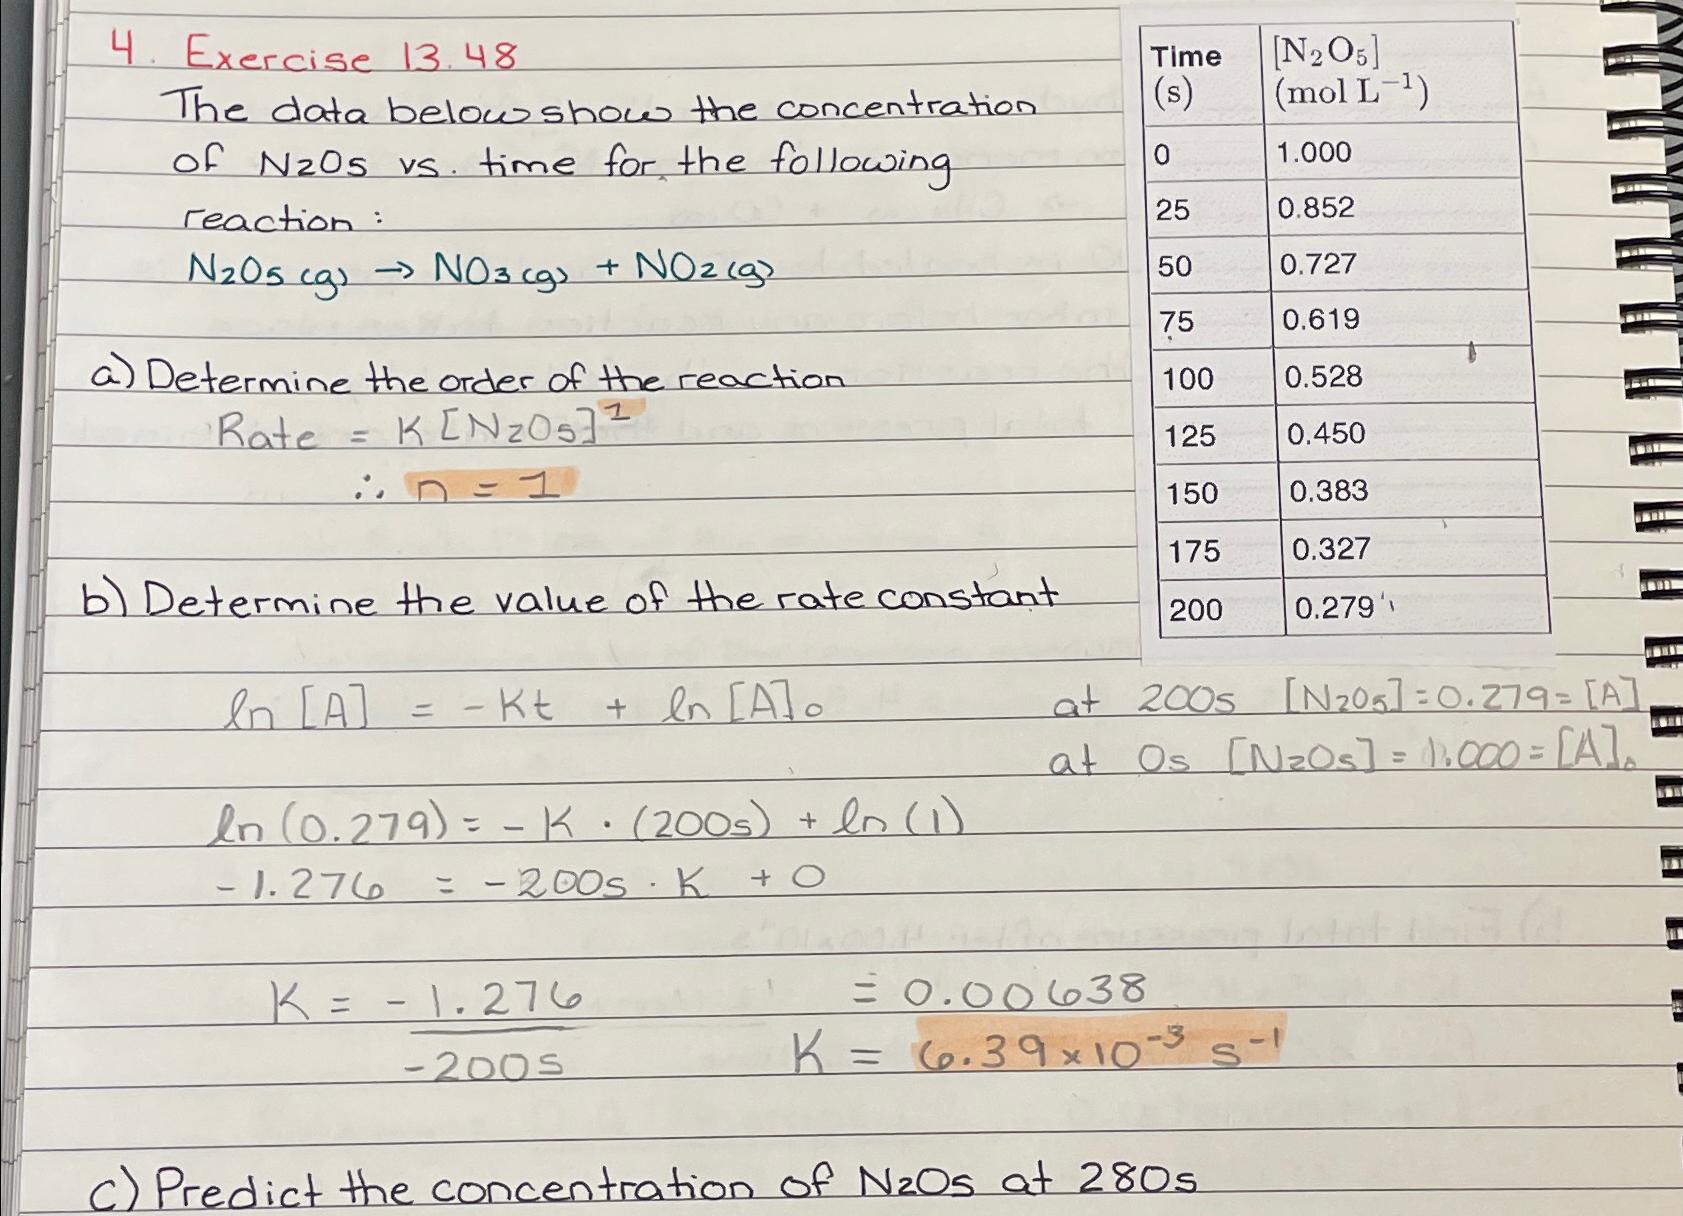 4. Exercise 13.48
The data below show the concentration
of N2O5 vs. time for the following
reaction:
N2O5 (g) → NO3 (g) + NO2 (g)
Time (s) [N₂O₅] (mol L⁻¹)
0 1.000
25 0.852
50 0.727
75 0.619
100 0.528
125 0.450
150 0.383
175 0.327
200 0.279
a) Determine the order of the reaction
Rate = K [N2O5]¹
∴ n = 1
b) Determine the value of the rate constant
ln [A] = -Kt + ln [A]₀
at 200s [N2O5] = 0.279 = [A]
at 0s [N2O5] = 1.000 = [A]₀
ln (0.279) = - K · (200s) + ln (1)
-1.276 = -200s · K + 0
K = -1.276 / -200s = 0.00638
K = 6.39 x 10⁻³ s⁻¹
c) Predict the concentration of N2O5 at 280s